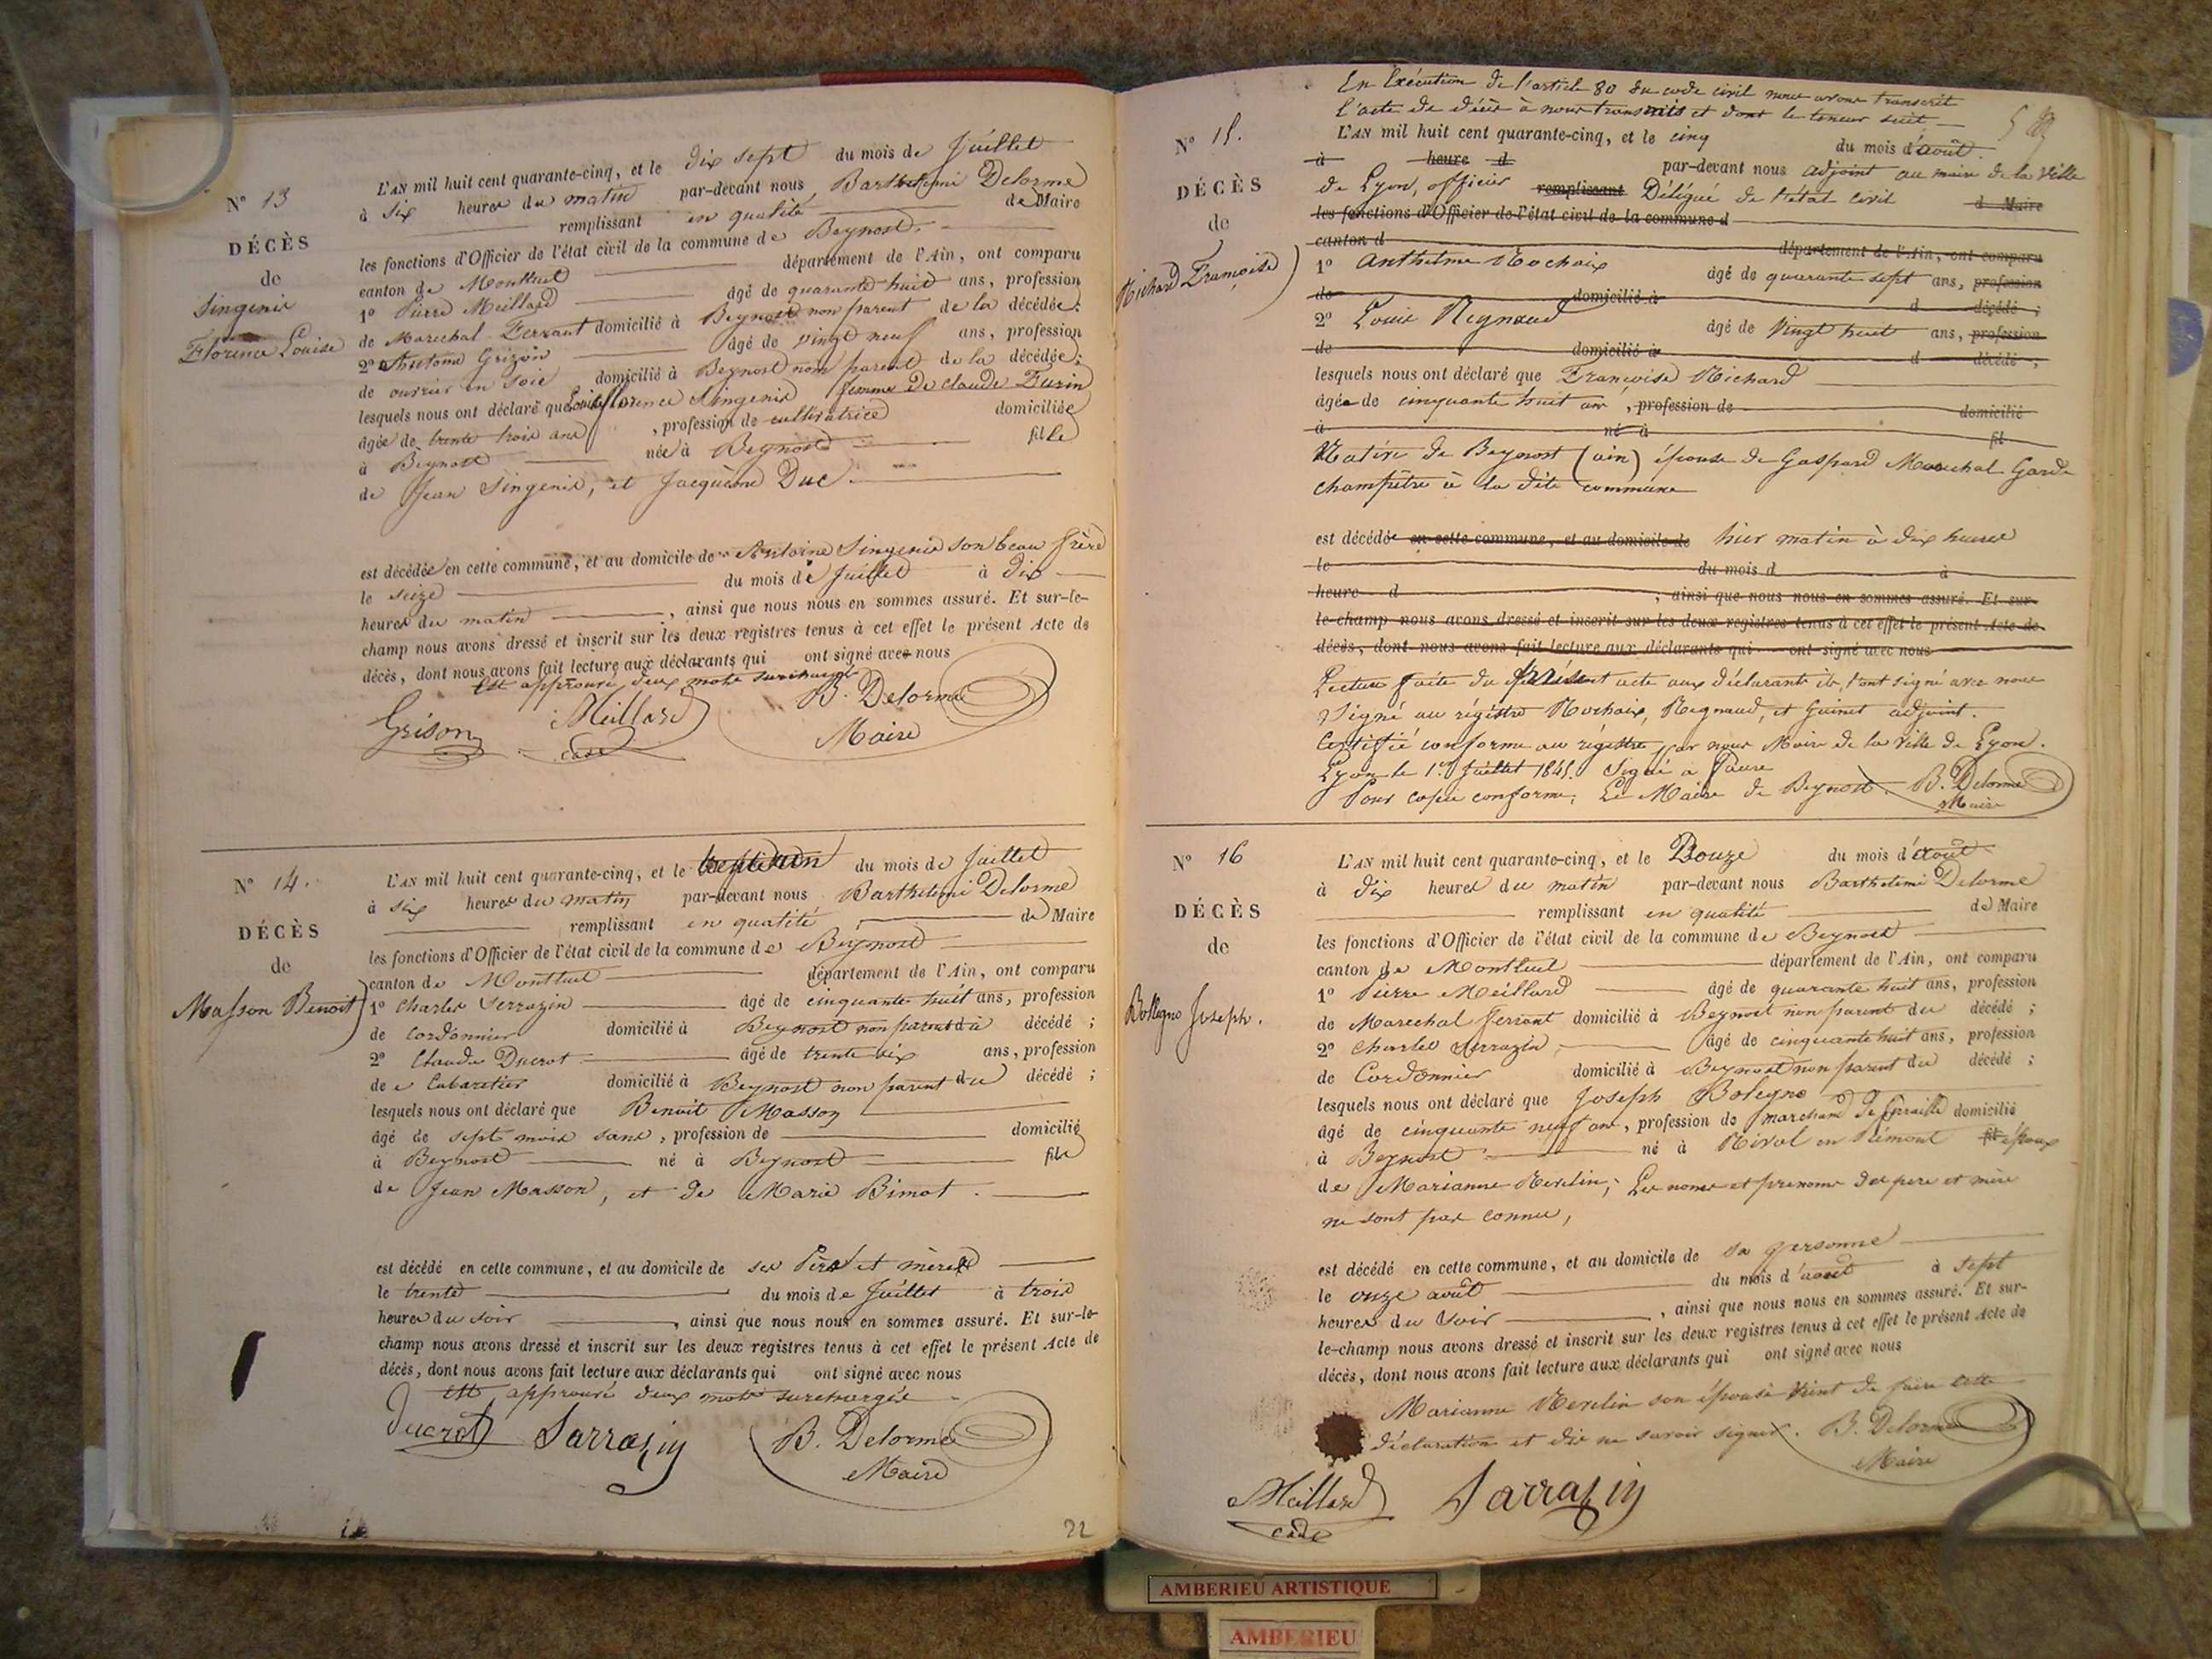 N° 13
DÉCÈS
de
Singenis
Florence Louise
L'AN mil huit cent quarante-cinq, et le dix sept du mois de Juillet
à six heures du matin par-devant nous Barthelemi Delorme
remplissant en qualité de Maire
les fonctions d'Officier de l'état civil de la commune de Beynost,
canton de Montluel département de l'Ain, ont comparu
1° Pierre Meillard âgé de quarante huit ans, profession
de Marechal Ferrant domicilié à Beynost non parent de la décédée;
2° Antoine Grizon âgé de vingt neuf ans, profession
de ouvrier en soie domicilié à Beynost non parent de la décédée;
lesquels nous ont déclaré que Louise florence Singenis femme De claude Furin
âgée de trente trois ans, profession de cultivatrice domiciliée
à Beynost née à Beynost fille
de Jean Singenis, et Jacquème Duc.
est décédée en cette commune, et au domicile de Antoine Singenis son beau frère
le seize du mois de Juillet à dix
heures du matin, ainsi que nous nous en sommes assuré. Et sur-le-
champ nous avons dressé et inscrit sur les deux registres tenus à cet effet le présent Acte de
décès, dont nous avons fait lecture aux déclarants qui ont signé avec nous
Est approuvé deux mots surchargés
Grison Meillard B. Delorme
cadet Maire
N° 14.
DÉCÈS
de
Masson Benoit
L'AN mil huit cent quarante-cinq, et le du mois de Juillet
à six heures du matin par-devant nous Barthelemi Delorme
remplissant en qualité de Maire
les fonctions d'Officier de l'état civil de la commune de Beynost
canton de Montluel département de l'Ain, ont comparu
1° Charles Serrazin âgé de cinquante huit ans, profession
de cordonnier domicilié à Beynost non parent du décédé;
2° Claude Ducrot âgé de trente six ans, profession
de Cabaretier domicilié à Beynost non parent du décédé;
lesquels nous ont déclaré que Benoit Masson
âgé de sept mois sans, profession de domicilié
à Beynost né à Beynost fils
de Jean Masson, et de Marie Bimot.
est décédé en cette commune, et au domicile de ses Père et mère
le trente du mois de Juillet à trois
heures du soir, ainsi que nous nous en sommes assuré. Et sur-le-
champ nous avons dressé et inscrit sur les deux registres tenus à cet effet le présent Acte de
décès, dont nous avons fait lecture aux déclarants qui ont signé avec nous
Est approuvé deux mots surchargés
Ducrot Sarrazin B. Delorme
Maire
22
En Exécution de l'article 80 du code civil nous avons transcrit
l'acte de décès à nous transmis et dont la teneur suit
N° 15.
DÉCÈS
de
Richard Françoise
L'AN mil huit cent quarante-cinq, et le cinq du mois d'août.
à heure d par-devant nous adjoint au maire de la Ville
de Lyon, officier remplissant Délégué de l'état civil d Maire
les fonctions d'Officier de l'état civil de la commune d
canton d département de l'Ain, ont comparu
1° Anthelme Rochaix âgé de quarante sept ans, profession
de domicilié à d décédé;
2° Louis Reynaud âgé de vingt huit ans, profession
de domicilié à d décédé;
lesquels nous ont déclaré que Françoise Richard
âgée de cinquante huit ans, profession de domicilié
à né à fil
Native de Beynost (ain) épouse de Gaspard Marechal Garde
champêtre à la dite commune
est décédée en cette commune, et au domicile de hier matin à dix heures
le du mois d à
heure d, ainsi que nous nous en sommes assuré. Et sur-
le-champ nous avons dressé et inscrit sur les deux registres tenus à cet effet le présent Acte de
décès, dont nous avons fait lecture aux déclarants qui ont signé avec nous
Lecture faite du présent acte aux déclarants ils l'ont signé avec nous
Signé au régistre Rochaix, Regnaud, et Guinet adjoint.
Certifié conforme au régistre par nous Maire de la Ville de Lyon.
Lyon le 1er Juillet 1845. Signé
Pour copie conforme, Le Maire de Beynost. B. Delorme
Maire
N° 16
DÉCÈS
de
Bollegno Joseph.
L'AN mil huit cent quarante-cinq, et le Douze du mois d'août
à dix heures du matin par-devant nous Barthelemi Delorme
remplissant en qualité de Maire
les fonctions d'Officier de l'état civil de la commune de Beynost
canton de Montluel département de l'Ain, ont comparu
1° Pierre Meillard âgé de quarante huit ans, profession
de Marechal ferrant domicilié à Beynost non parent du décédé;
2° Charles Serrazin, âgé de cinquante huit ans, profession
de Cordonnier domicilié à Beynost non parent du décédé;
lesquels nous ont déclaré que Joseph Bolegno
âgé de cinquante neuf ans, profession de marchand de ferraille domicilié
à Beynost né à Rivol en Piémont fil époux
de Marianne Revelin; Les noms et prenoms des pere et mère
ne sont pas connus,
est décédé en cette commune, et au domicile de sa personne
le onze août du mois d'août à sept
heures du soir, ainsi que nous nous en sommes assuré. Et sur-
le-champ nous avons dressé et inscrit sur les deux registres tenus à cet effet le présent Acte de
décès, dont nous avons fait lecture aux déclarants qui ont signé avec nous
Marianne Revelin son épouse vient de faire cette
déclaration et dit ne savoir signer. B. Delorme
Maire
Meillard Sarrazin
cadet
AMBERIEU ARTISTIQUE
AMBERIEU